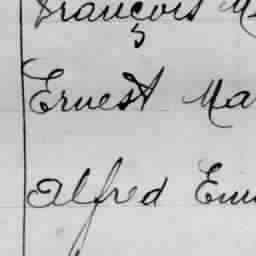 François M
Ernest Ma
Alfred Em